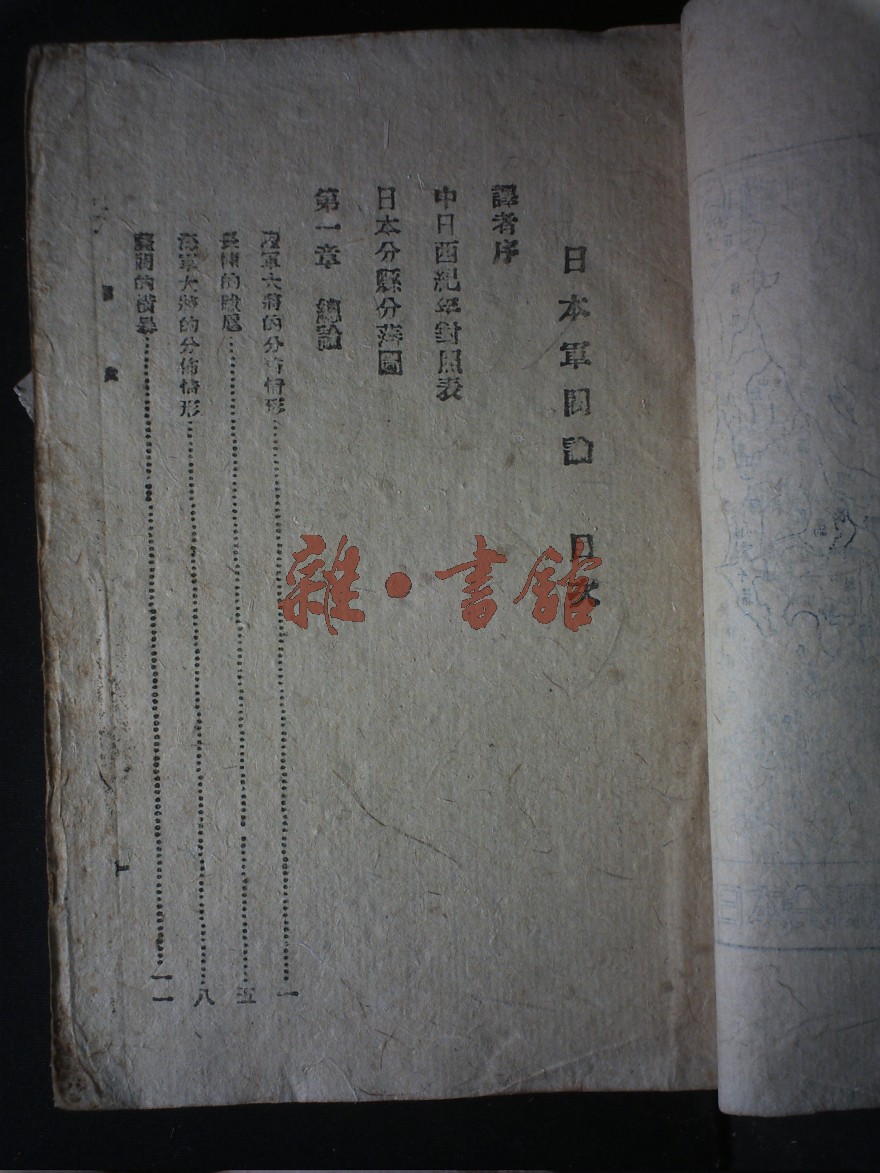 日本軍閥論　目次
譯者序
中日西紀年對照表
日本分縣分藩圖
第一章　總論
陸軍大將的分佈情形……一
長佛的跋扈……五
海軍大將的分佈情形……八
藩閥的橫暴……一一
目次
一
雜·書館